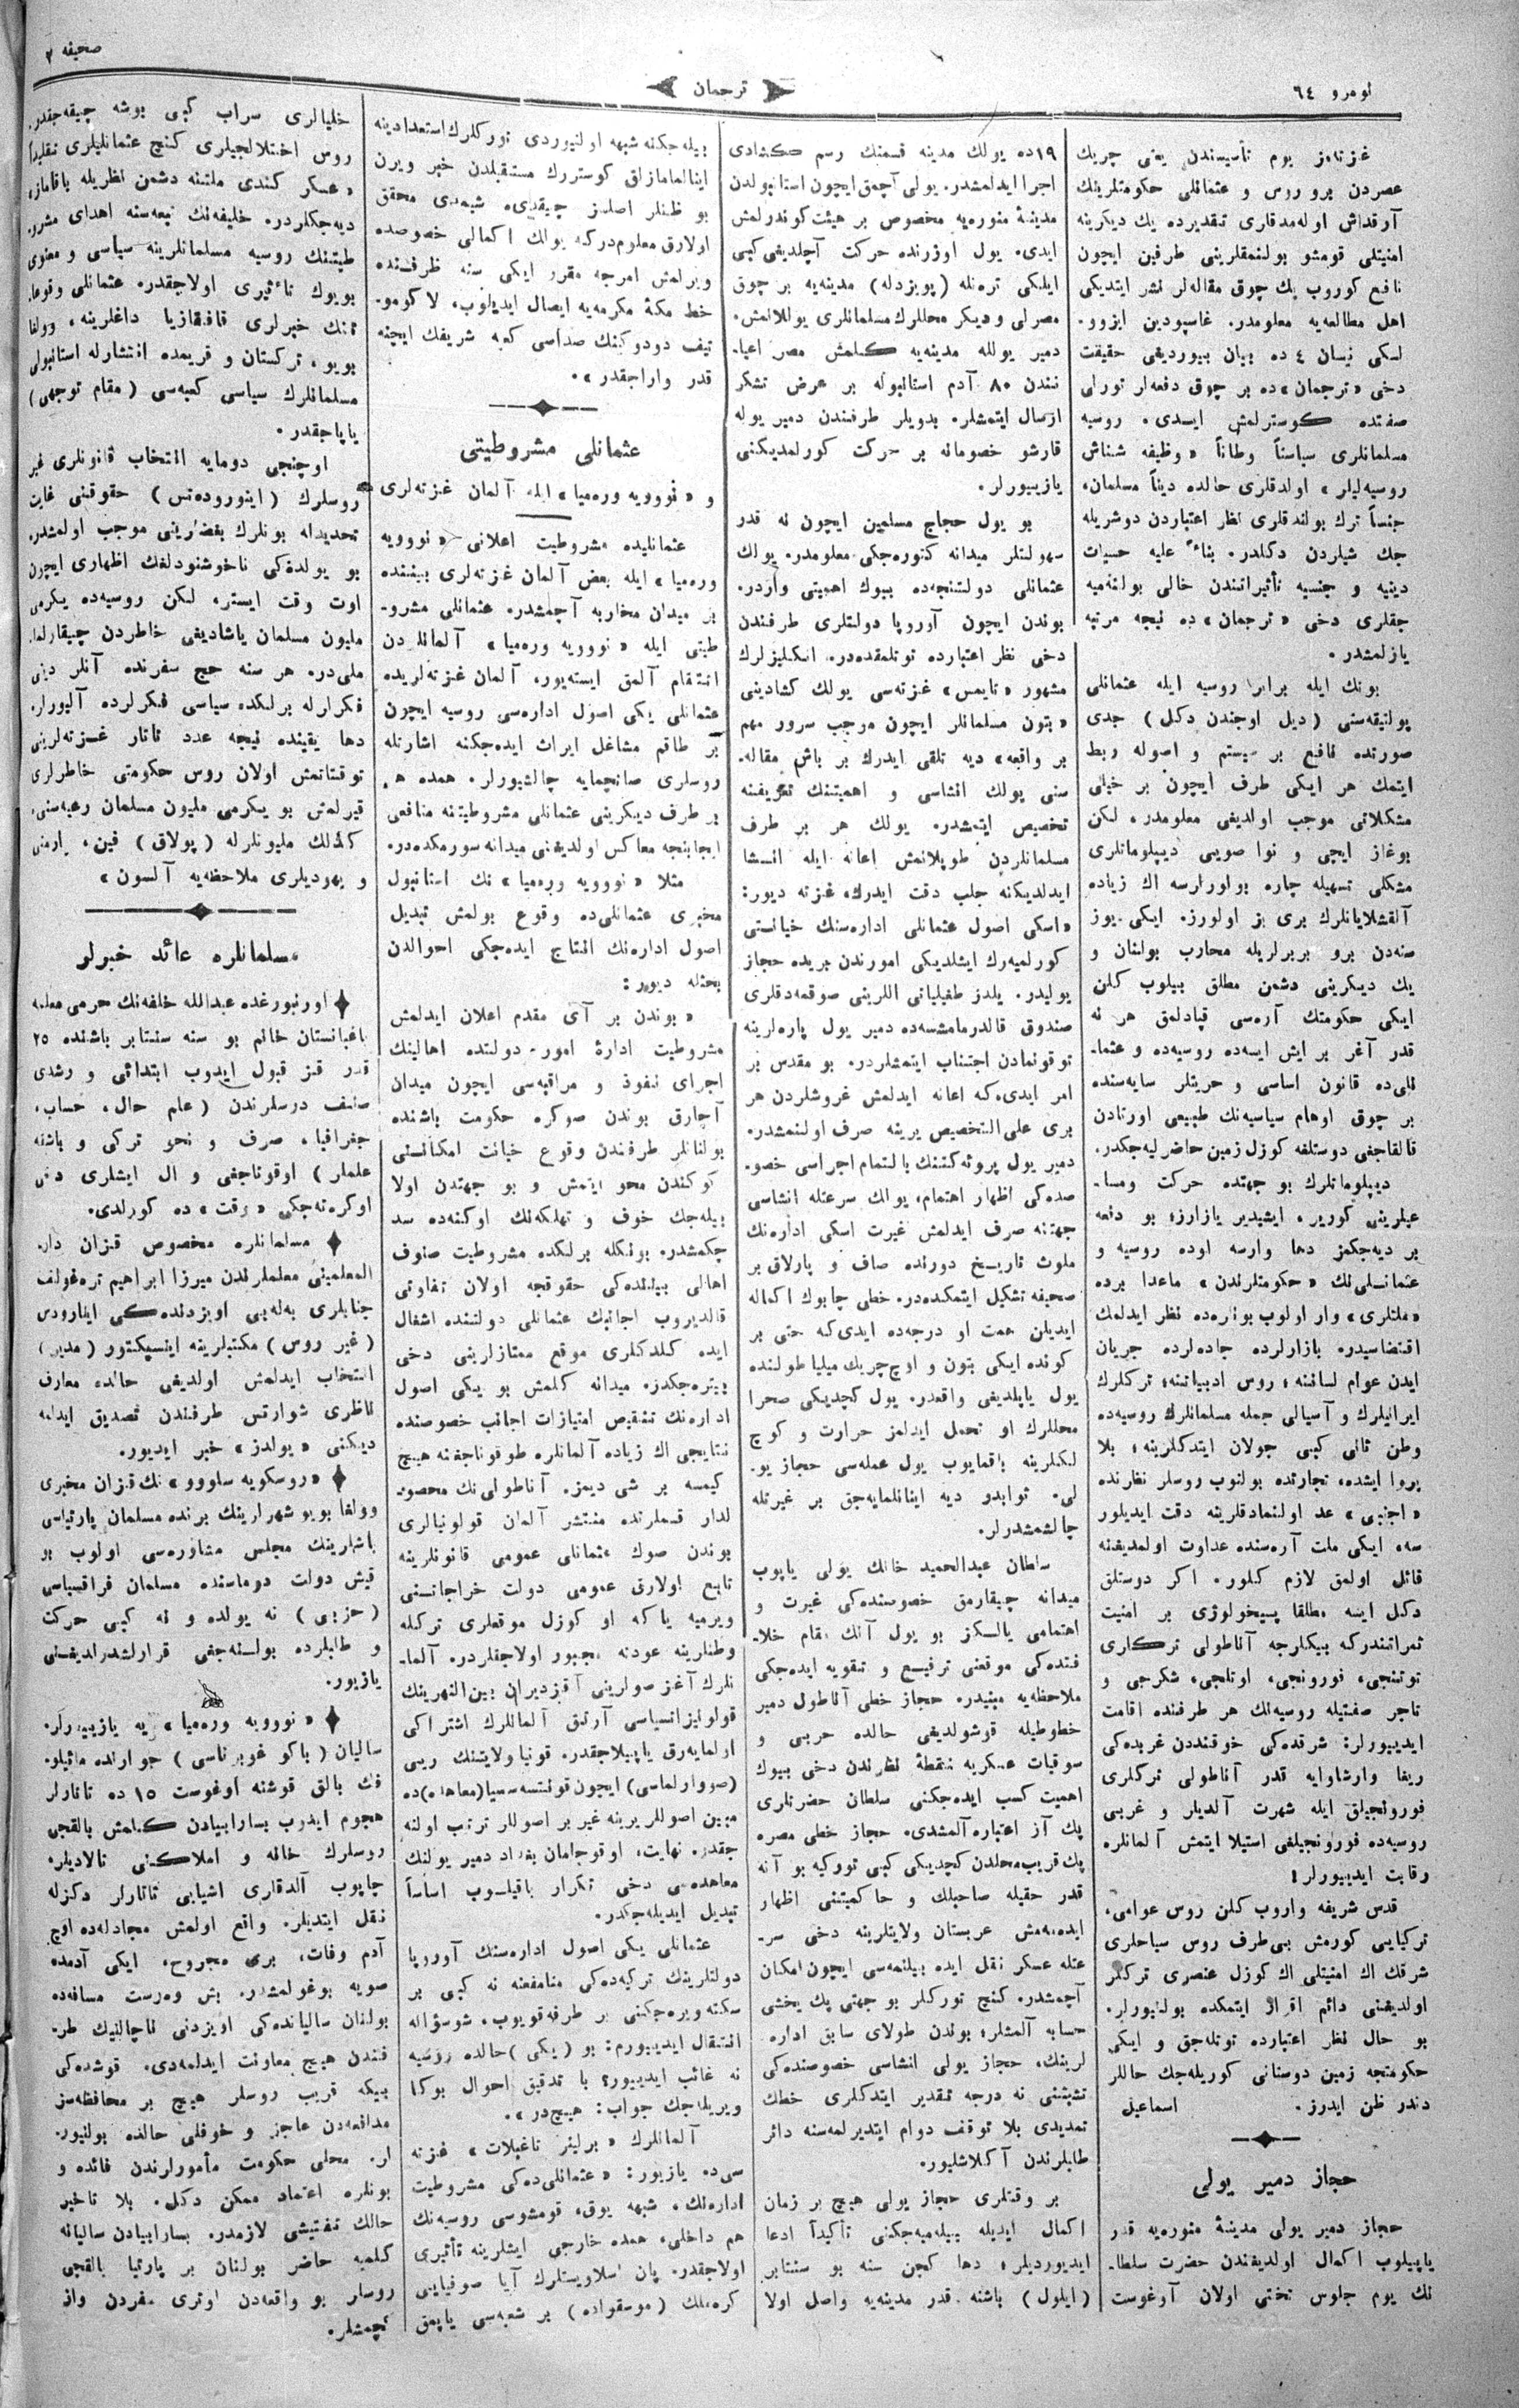 نومرو ٦٤
ترجمان
صحیفه ٢
غزته‌مز یوم تأسیسندن یعنی چریك
عصردن برو روس و عثمانلی حكومتلرینك
آرقداش اوله‌مدقاری تقدیرده یك دیكرینه
امنیتلی قومشو بولنمقلرینی طرفین ایچون
نافع كوروب پك چوق مقاله‌لر نشر ایتدیكی
اهل مطالعه‌یه معلومدر. غاسپودین ایزوو.
لسكی نیسان ٤ ده بیان بیوردیغی حقیقت
دخی «ترجمان»ده بر چوق دفعه‌لر تورلی
صفتده كوسترلمش ایسدی. روسیه
مسلمانلری سیاستاً وطاناً «وظیفه شناش
روسیه‌لیلر» اولدقلری حالده دیناً مسلمان،
جنساً ترك بولندقلری نظر اعتباردن دوشریله
جك شیلردن دكلدر. بناءً علیه حسیات
دینیه و جنسیه تأثیراتندن خالی بولنه‌میه
جقلری دخی «ترجمان»ده نیچه مرتبه
یازلمشدر.
بونك ایله برابر روسیه ایله عثمانلی
پولتیقه‌سنی (دیل اوجندن دكل) جدی
صورتده نافع بر سیستم و اصوله ربط
ایتمك هر ایكی طرف ایچون بر خیلی
مشكلاتی موجب اولدیغی معلومدر، لكن
بوغاز ایچی و نوا صویی دیپلوماتلری
مشكلی تسهیله چاره بولورارسه اك زیاده
آلقشلایانلرك بری بز اولورز. ایكی یوز
سنه‌دن برو بربرلریله محارب بولنان و
یك دیكرینی دشمن مطلق بیلوب كلن
ایكی حكومتك آره‌سی قپادلمق هر نه
قدر آغر بر ایش ایسه‌ده روسیه‌ده و عثما.
نلی‌ده قانون اساسی و حریتلر سایه‌سنده
بر چوق اوهام سیاسیه‌نك طبیعی اورتادن
قالقاجغی دوستلغه كوزل زمین حاضرلیه‌جكدر.
دیپلوماتلرك بو جهتده حركت ومسا.
عیلرینی كوریر، ایشیدیر یازارز؛ بو دفعه
بر دیه‌جكمز دها وارسه اوده روسیه و
عثمانلی‌نك «حكومتلرندن» ماعدا برده
«ملتلری» وار اولوب بونلره‌ده نظر ایدلمك
اقتضاسیدر. بازارلرده جاده‌لرده جریان
ایدن عوام لسانته؛ روس ادبیاتنه؛ تركلرك
ایرانیلرك و آسیالی جمله مسلمانلرك روسیه‌ده
وطن ثانی كبی جولان ایتدكلرینه؛ بلا
پروا ایشده، تجارتده بولنوب روسلر نظرنده
«اجنبی» عد اولنمادقلرینه دقت ایدیلور
سه، ایكی ملت آره‌سنده عداوت اولمدیغنه
قائل اولمق لازم كلور. اكر دوستلق
دكل ایسه مطلقا پسیخولوژی بر امنیت
ثمراتندركه بیكلرجه آناطولی تركلری
توتنجی، فورونجی، اوتلجی، شكرجی و
تاجر صفتیله روسیه‌نك هر طرفنده اقامت
ایدییورلر: شرقده‌كی خوقنددن غربده‌كی
ریغا وارشاوایه قدر آناطولی تركلری
فورونجیلق ایله شهرت آلدیلر و غربی
روسیه‌ده فورونجیلغی استیلا ایتمش آلمانلره
رقابت ایدییورلر!
قدس شریفه واروب كلن روس عوامی،
تركیایی كورمش بی‌طرف روس سیاحلری
شرقك اك امنیتلی اك كوزل عنصری تركلر
اولدیغنی دائم اقرار ایتمكده بولنیورلر.
بو حال نظر اعتبارده توتله‌جق و ایكی
حكومتجه زمین دوستانی كوریله‌جك حاللر
دندر ظن ایدرز. اسماعیل
حجاز دمیر یولی
حجاز دمیر یولی مدینهٔ منوره‌یه قدر
یاپیلوب اكمال اولدیغندن حضرت سلطا.
نك یوم جلوس تختی اولان آوغوست
١٩ده یولك مدینه قسمنك رسم كشادی
اجرا ایدلمشدر. یولی آچمق ایچون استانبولدن
مدینهٔ منوره‌یه مخصوص بر هیئت كوندرلمش
ایدی. یول اوزرنده حركت آچلدیغی كبی
ایلكی تره‌نله (پویزدله) مدینه‌یه بر چوق
مصرلی و دیكر محللرك مسلمانلری یوللانمش.
دمیر یوللله مدینه‌یه كلمش مصر اعیا.
نندن ٨٠ آدم استانبوله بر عرض تشكر
ارسال ایتمشلر. بدویلر طرفندن دمیر یوله
قارشو خصومانه بر حركت كورلمدیكنی
یازییورلر.
بو یول حجاج مسلمین ایچون نه قدر
سهولتلر میدانه كتوره‌جكی معلومدر. یولك
عثمانلی دولتنجه‌ده بیوك اهمیتی واردر.
بوندن ایچون آوروپا دولتلری طرفندن
دخی نظر اعتبارده توتلمقده‌در. انكلیزلرك
مشهور «تایمس» غزته‌سی یولك كشادینی
«بتون مسلمانلر ایچون موجب سرور مهم
بر واقعه» دیه تلقی ایدرك بر باش مقاله.
سنی یولك انشاسی و اهمیتنك تعریفنه
تخصیص ایتمشدر. یولك هر بر طرف
مسلمانلردن طوپلانمش اعانه ایله انشا
ایدلدیكنه جلب دقت ایدرك، غزته دیور:
«اسكی اصول عثمانلی اداره‌سنك خیانتی
كورلمیه‌رك ایشلدیكی امورندن بریده حجاز
یولیدر. یلدز طفیلیاتی اللرینی صوقمه‌دقلری
صندوق قالدرمامشسه‌ده دمیر یول پاره‌لرینه
توقونمادن اجتناب ایتمشلردر. بو مقدس بر
امر ایدی‌كه اعانه ایدلمش غروشلردن هر
بری علی‌التخصیص یرینه صرف اولنمشدر.
دمیر یول پروژه‌كتنك بالتمام اجراسی خصو.
صده‌كی اظهار اهتمام، یولك سرعتله انشاسی
جهتنه صرف ایدلمش غیرت اسكی اداره‌نك
ملوث تاریخ دورنده صاف و پارلاق بر
صحیفه تشكیل ایتمكده‌در. خطی چابوك اكماله
ایدیلن همت او درجه‌ده ایدی‌كه حتی بر
كونده ایكی بتون و اوچ چریك میلیا طولنده
یول یاپلدیغی واقعدر. یول كچدیكی صحرا
محللرك او تحمل ایدلمز حرارت و كوچ
لكلرینه باقمایوب یول عمله‌سی حجاز یو.
لی. ثوابدو دیه اینانلمایه‌جق بر غیرتله
چالشمشدرلر.
سلطان عبدالحمید خانك یولی یاپوب
میدانه چیقارمق خصوصنده‌كی غیرت و
اهتمامی یالكز بو یول آنك مقام خلا.
فتده‌كی موقعنی ترفیع و تقویه ایده‌جكی
ملاحظه‌یه مبنیدر. حجاز خطی آناطول دمیر
خطوطیله قوشولدیغی حالده حربی و
سوقیات عسكریه نقطهٔ نظرندن دخی بیوك
اهمیت كسب ایده‌جكنی سلطان حضرتلری
پك آز اعتباره آلمشدی. حجاز خطی مصره
پك قریب محلدن كچدیكی كبی توركیه بو آنه
قدر حقیله صاحبلك و حاكمیتنی اظهار
ایده‌مه‌مش عربستان ولایتلرینه دخی سر.
عتله عسكر نقل ایده بیلنمه‌سی ایچون امكان
آچمشدر. كنج توركلر بو جهتی پك یخشی
حسابه آلمشلر؛ بوندن طولای سابق اداره
لرینك، حجاز یولی انشاسی خصوصنده‌كی
تشبثنی نه درجه تقدیر ایتدكلری خطك
تمدیدی بلا توقف دوام ایتدیرلمه‌سنه دائر
طابلرندن آكلاشلیور.
بر وقتلری حجاز یولی هیچ بر زمان
اكمال ایدیله بیله‌میه‌جكنی تأكیداً ادعا
ایدیوردیلر؛ دها كچن سنه بو سنتابر
(ایلول) باشنه قدر مدینه‌یه واصل اولا
بیله‌جكنه شبهه اولنیوردی تورركلرك استعدادینه
اینالمامازلق كوسترر‌ك مستقبلدن خبر ویرن
بو ظنلر اصلسز چیقدی. شیمدی محقق
اولارق معلومدركه یولك اكمالی خصوصده
ویرلمش امرجه مقرر ایكی سنه ظرفنده
خط مكهٔ مكرمه‌یه ایصال ایدیلوب، لاكومو.
تیف دودوكنك صداسی كعبه شریفك ایچنه
قدر واراجقدر».
عثمانلی مشروطیتی
و «نوویه وره‌میا» ایله آلمان غزته‌لری
عثمانلیده مشروطیت اعلانی «نوویه
وره‌میا» ایله بعض آلمان غزته‌لری بیننده
بر میدان محاربه آچمشدر. عثمانلی مشرو.
طیتی ایله «نوویه وره‌میا» آلمانلردن
انتقام آلمق ایسته‌یور، آلمان غزته‌لریده
عثمانلی یكی اصول اداره‌سی روسیه ایچون
بر طاقم مشاغل ایراث ایده‌جكنه اشارتله
روسلری صانچمایه چالشیورلر. همده هر
بر طرف دیكرینی عثمانلی مشروطیتنه منافعی
ایجابنجه معاكس اولدیغنی میدانه سورمكده‌در.
مثلا «نوویه وره‌میا» نك استانبول
مخبری عثمانلی‌ده وقوع بولمش تبدیل
اصول اداره‌نك انتاج ایده‌جكی احوالدن
بحثله دیور:
«بوندن بر آی مقدم اعلان ایدلمش
مشروطیت ادارهٔ امور دولتده اهالینك
اجرای نفوذ و مراقبه‌سی ایچون میدان
آچارق بوندن صوكره حكومت باشنده
بولنانلر طرفندن وقوع خیانت امكانستی
كوكندن محو ایتمش و بو جهتدن اولا
بیله‌جك خوف و تهلكه‌نك اوكنه‌ده سد
چكمشدر. بونكله برلكده مشروطیت صنوف
اهالی بیننده‌كی حقوقجه اولان تفاوتی
قالدیروب اجانبك عثمانلی دولتنده اشغال
ایده كلدكلری موقع ممتازلرینی دخی
بیتره‌جكدر. میدانه كلمش بو یكی اصول
اداره‌نك تنقیص امتیازات اجانب خصوصنده
نتایجی اك زیاده آلمانلره طوقوناجغنه هیچ
كیمسه بر شی دیمز. آناطولی‌نك محصو.
لدار قسملرنده منتشر آلمان قولونیالری
بوندن صوك عثمانلی عمومی قانونلرینه
تابع اولارق عمومی دولت خراجاتنی
ویرمیه یا كه او كوزل موقعلری تركله
وطنلرینه عودته مجبور اولاجقلردر. آلما.
نلرك آغز صولرینی آقزدیران بین‌النهرینك
قولونیزاتسیاسی آرتق آلمانلرك اشتراكی
اولمایه‌رق یاپیلاجقدر. قونیا ولایتنك ریی
(صووارلماسی) ایچون قونتسه‌سسیا (معاهده)ده
مبین اصوللر یرینه غیر بر اصوللر ترتیب اولنه
جقدر. نهایت، اوقوجامان بغداد دمیر یولنك
معاهده‌سی دخی تكرار باقیلوب اساساً
تبدیل ایدیله‌جكدر.
عثمانلی یكی اصول اداره‌سنك آوروپا
دولتلرینك تركیه‌ده‌كی منافعنه نه كبی بر
سكته ویره‌جكنی بر طرفه قویوب، شو سؤاله
انتقال ایدییورم: بو (یكی) حالده روسیه
نه غائب ایدییور؟ با تدقیق احوال بوكا
ویریله‌جك جواب: هیچ در».
آلمانلرك «برلینر تاغبلات» غزته
سی‌ده یازیور: «عثمانلی‌ده‌كی مشروطیت
اداره‌نك، شبهه یوق، قومشوسی روسیه‌نك
هم داخلی، همده خارجی ایشلرینه تأثیری
اولاجقدر. پان اسلاویستلرك آیا صوفیایی
كره‌ملك (موسقواده) بر شعبه‌سی یاپمق
خلیالری سراب كبی بوشه چیقه‌جقدر.
روس اختلالجیلری كنج عثمانلیلری تقلیداً
«عسكر كندی ملتنه دشمن نظریله باقاماز»
دیه‌جكلردر. خلیفه‌نك تبعه‌سنه اهدای مشرو.
طیتنك روسیه مسلمانلرینه سیاسی و معنوی
بویوك تاءثیری اولاجقدر. عثمانلی وقوعا.
تنك خبرلری قافقازیا داغلرینه، وولغا
بویو، تركستان و قریمده انتشارله استانبولی
مسلمانلرك سیاسی كعبه‌سی (مقام توجهی)
یاپاجقدر.
اوچنجی دومایه انتخاب قانونلری غیر
روسلرك (اینورودەتس) حقوقنی غایت
تحدیدله بونلرك بغضرینی موجب اولمشدر.
بو یولده‌كی ناخوشنودلغك اظهاری ایچون
اوت وقت ایستر، لكن روسیه‌ده یكرمی
ملیون مسلمان یاشادیغی خاطردن چیقارلما.
ملی‌در. هر سنه حج سفرنده آنلر دینی
فكرلرله برلكده سیاسی فكرلرده آلیورلر.
دها یقینده نیچه عدد تاتار غزته‌لرینی
توقتاتمش اولان روس حكومتی خاطرلری
قیرلمش بو یكرمی ملیون مسلمان رعیه‌سنی،
كذلك ملیونلرله (پولاق) فین، ارمنی
و یهودیلری ملاحظه‌یه آلسون»
مسلمانلره عائد خبرلر
اورنبورغده عبدالله خلفه‌نك حرمی معلمه
باغبانستان خانم بو سنه سنتابر باشنده ٢٥
قدر قز قبول ایدوب ابتدائی و رشدی
صنف درسلرندن (علم حال، حساب،
جغرافیا، صرف و نحو تركی و باشقه
علملر) اوقوتاجغی و ال ایشلری دخی
اوكره‌ته‌جكی «وقت» ده كورلدی.
مسلمانلره مخصوص قزان دار
المعلمینی معلملرندن میرزا ابراهیم تره‌غولف
جنابلری به‌له‌بی اویزدنده‌كی اینارودس
(غیر روس) مكتبلرینه اینسپكتور (مدیر)
انتخاب ایدلمش اولدیغی حالده معارف
ناظری شوارتس طرفندن تصدیق ایدلمه
دیكنی «یولدز» خبر ایدیور.
«روسكویه سلووو» نك قزان مخبری
وولغا بویو شهرلرینك برنده مسلمان پارتیاسی
باشلرینك مجلس مشاوره‌سی اولوب بو
قیش دولت دوماسنده مسلمان فراقسیاسی
(حزبی) نه یولده و نه كبی حركت
و طابلرده بولنه‌جغی قرارلشدرلدیغنی
یازیور.
«نوویه وره‌میا» یه یازییورلر.
سالیان (باكو غوبرناسی) جوارنده مانیلو.
فك بالق قوشنه آوغوست ١٥ ده تاتارلر
هجوم ایدوب بسارابیادن كلمش بالقجی
روسلرك خانه و املاكنی تالادیلر.
چاپوب آلدقلری اشیایی تاتارلر دكزله
نقل ایتدیلر. واقع اولمش مجادله‌ده اوچ
آدم وفات، بری مجروح، ایكی آدمده
صویه بوغولمشدر. بش وه‌رست مسافه‌ده
بولنان سالیانده‌كی اویزدنی ناچالنیك طر.
فندن هیچ معاونت ایدلمه‌دی. قوشده‌كی
بیكه قریب روسلر هیچ بر محافظه‌سز
مدافعه‌دن عاجز و خوفلی حالده بولنیور.
لر. محلی حكومت مأمورلرندن فائده و
بونلره اعتماد ممكن دكل. بلا تاخیر
حالك تفتیشی لازمدر. بسارابیادن سالیانه
كلمیه حاضر بولنان بر پارتیا بالقجی
روسلر بو واقعه‌دن اوتری سفردن واز
كچمشلر.